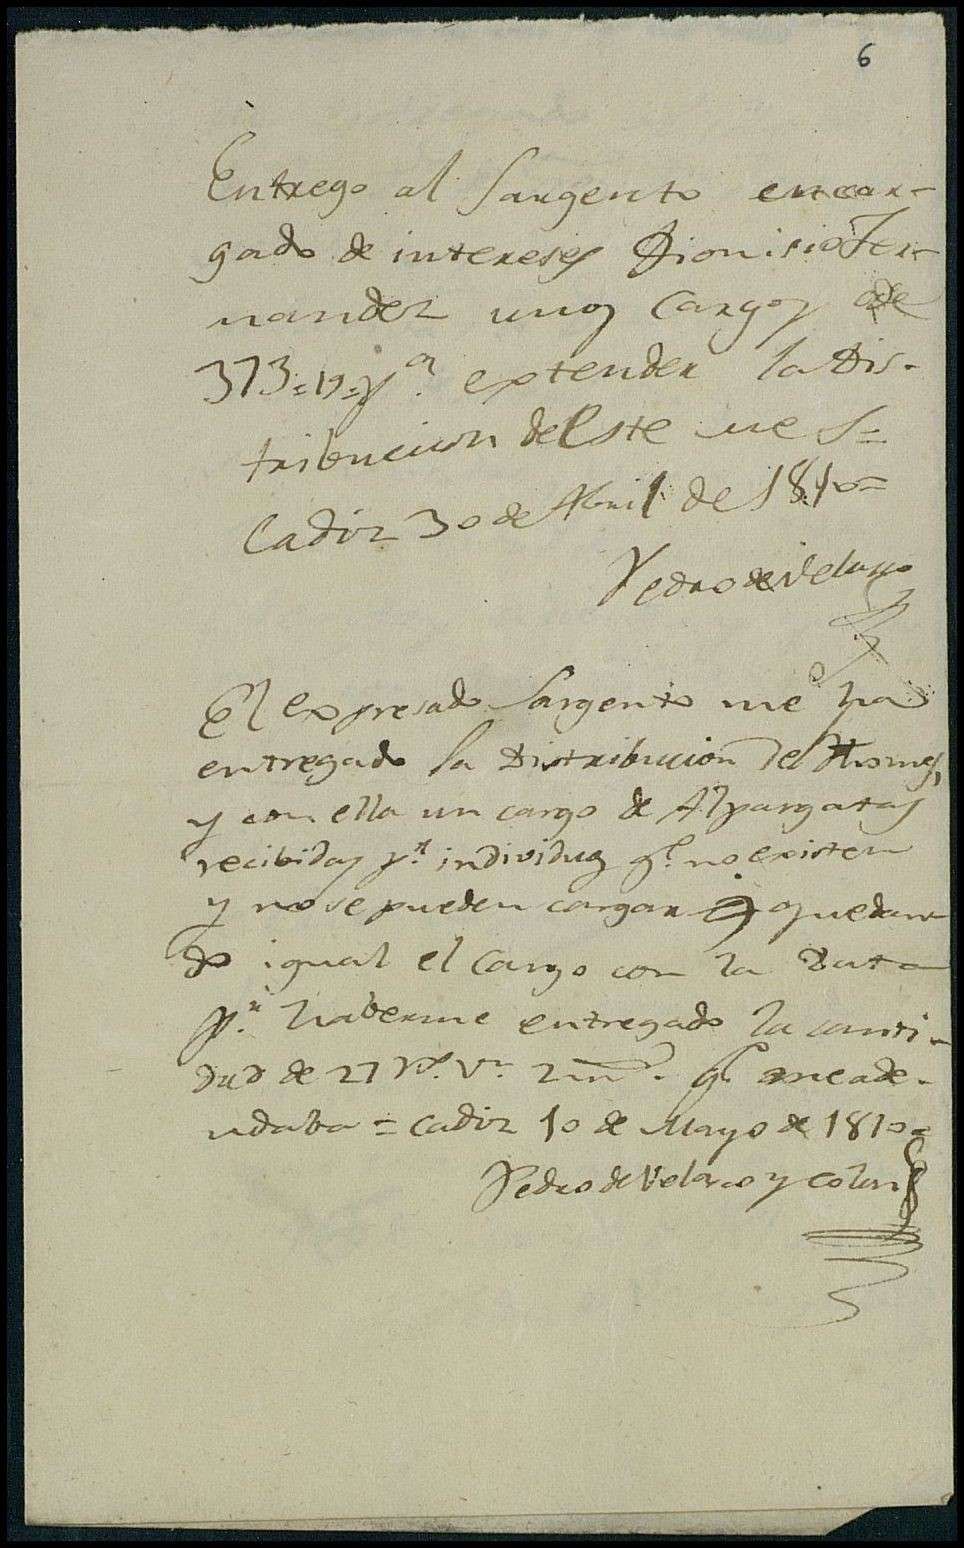 6
Entrego al Sargento encar-
gado de intereses Dionisio Fer-
nandez unos Cargos de
373=19= pa. extender la Dis-
tribucion de este me s=
Cadiz 30 de Abril de 1810=
Pedro de Velasco
El expresado Sargento me ha
entregado la Distribucion del
y con ella un cargo de Alpargatas
recibidas pr. individuos qe. no existen
y no se pueden cargar quedan-
do igual el Cargo con la Data
pr. haberme entregado la canti-
dad de 27 rs. vn. 2 mrs. qe. me ade-
udaba = Cadiz 10 de Mayo de 1810=
Pedro de Velasco y Colon